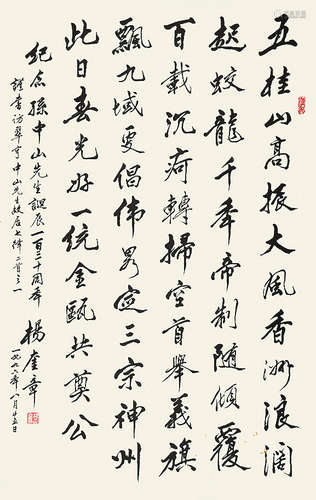 五桂山高振大風香洲浪濶
起蛟龍千年帝制随傾覆
百載沉疴轉掃空首舉義旗
飄九域更倡伟畧定三宗神州
此日春光好一統金甌共奠公
紀念孫中山先生誕辰一百三十周年
謹書訪翠亨中山先生故居七律二首之一
楊奎章
一九九六年八月廿五日